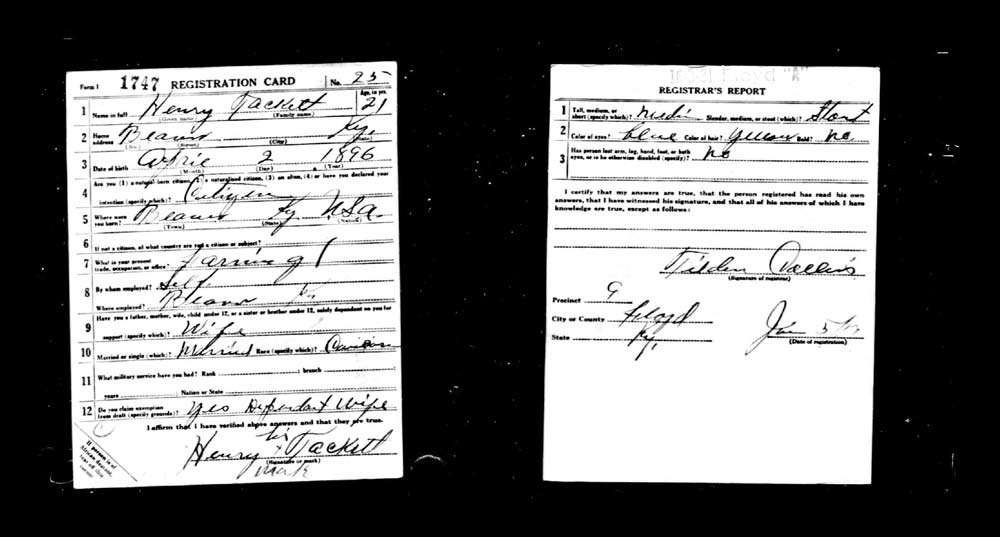 Form 1 1747 REGISTRATION CARD No. 25
1 Name in full Henry Tackett Age, in yrs. 21
(Given name) (Family name)
2 Home address Beaver Ky.
(No.) (Street) (City)
3 Date of birth April 2 1896
(Month) (Day) (Year)
4 Are you (1) a natural-born citizen, (2) a naturalized citizen, (3) an alien, (4) or have you declared your
intention (specify which)? Citizen
5 Where were you born? Beaver Ky USA.
(Town) (State) (Nation)
6 If not a citizen, of what country are you a citizen or subject?
7 What is your present trade, occupation, or office? Farming
8 By whom employed? Self
Where employed? Beaver Ky
9 Have you a father, mother, wife, child under 12, or a sister or brother under 12, solely dependent on you for
support (specify which)? Wife
10 Married or single (which)? Married Race (specify which)?
11 What military service have you had? Rank ; branch ;
years ; Nation or State
12 Do you claim exemption from draft (specify grounds)? Yes Dependant Wife
I affirm that I have verified above answers and that they are true.
his
Henry x Tackett
(Signature or mark)
mark
If person is of
African descent,
tear off this
corner
"A"
REGISTRAR'S REPORT
1 Tall, medium, or short (specify which)? Medi Slender, medium, or stout (which)? Stout
2 Color of eyes? blue Color of hair? Yellow Bald? No.
3 Has person lost arm, leg, hand, foot, or both eyes, or is he otherwise disabled (specify)? No
I certify that my answers are true, that the person registered has read his own
answers, that I have witnessed his signature, and that all of his answers of which I have
knowledge are true, except as follows:
Tilden
(Signature of registrar)
Precinct 9
City or County Floyd
State Ky.
(Date of registration)